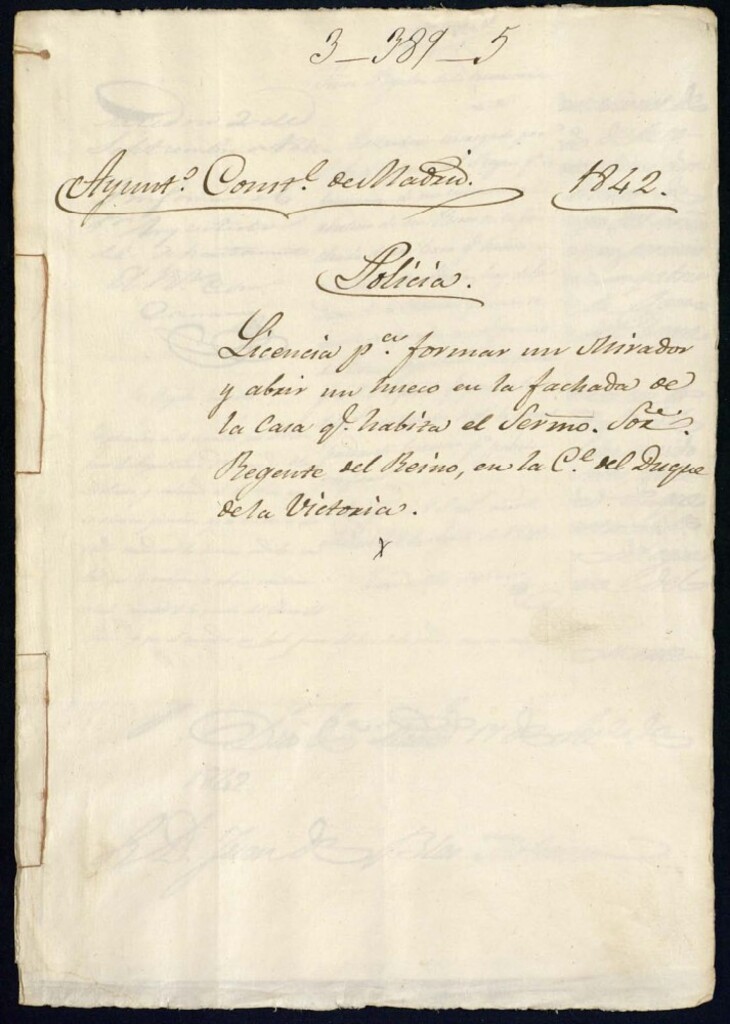 3_389_5
Ayunt.º Const.l de Madrid. 1842.
Policia.
Licencia p.ª formar un Mirador
y abrir un hueco en la fachada de
la Casa q.e habita el Sermo. Sor.
Regente del Reino, en la C.e del Duque
de la Victoria.